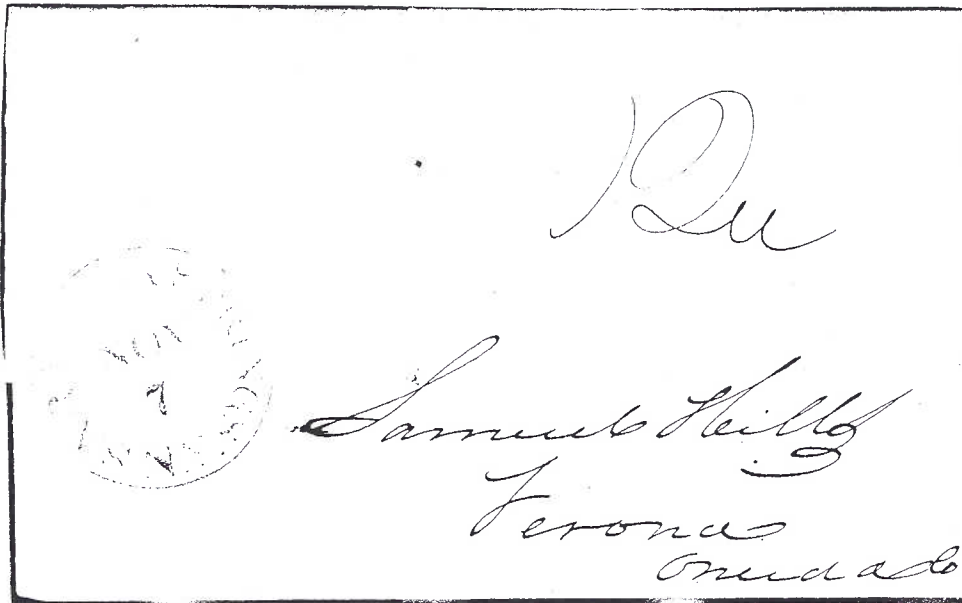 Due
NOV
7
Samuel Hills
Verona
Oneida Co